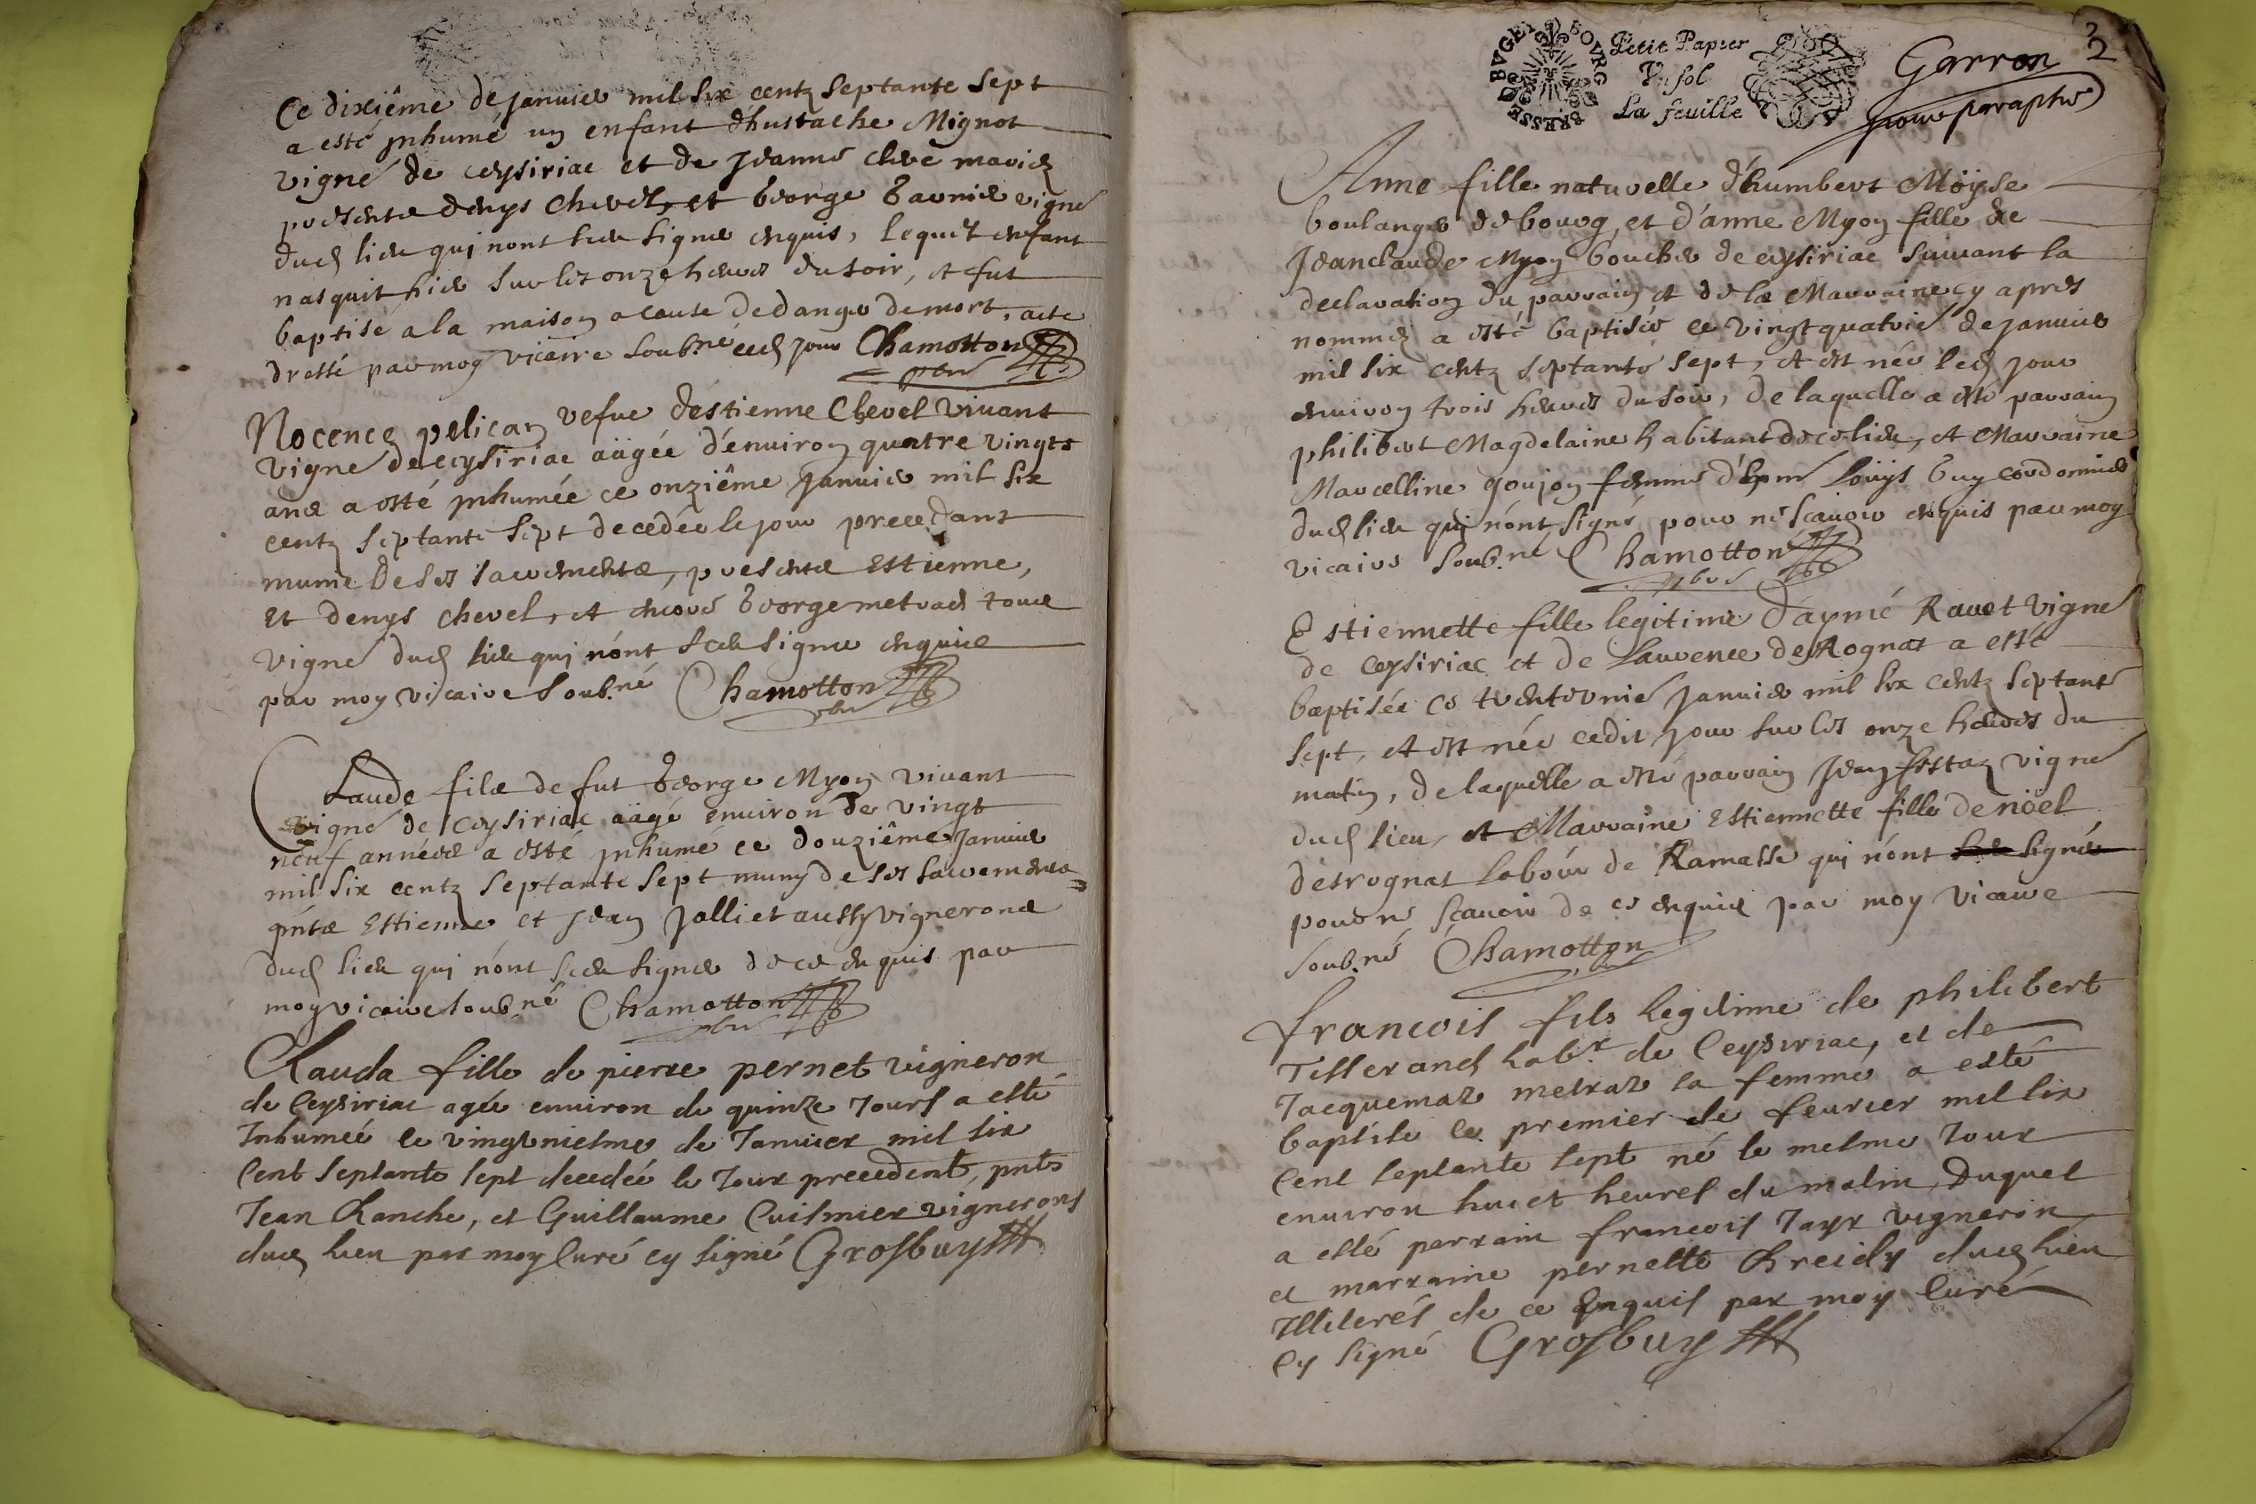 Ce dixiême de januier mil six centz septante sept
a esté jnhumé un enfant d'hustache Mignot
vigné de ceysiriac et de jeanne clere mariez
presents denys chevel, et george barnier vigné
dud lieu qui nont sceu signer enquis, lequel enfant
nasquit hier sur les onze heures du soir, et fut
baptisé a la maison a cause de danger de mort, acte
dressé par moy vicaire soub.né ced jour Chamotton
pbre
Nocence pelican vefue d'estienne Chevel viuant
vigné de ceysiriac äägée d'enuiron quatre vingts
ans a esté jnhumée ce onziême januier mil six
centz septante sept decedée le jour precedant
munie de ses sacrements, presents Estienne,
et denys chevel, et encore george metras tous
vigné dud lieu qui n'ont sceu signer enquis
par moy vicaire soub.né Chamotton
pbre
Claude fils de fut george Myon viuant
vigné de ceysiriac äägé enuiron de vingt
neuf années a esté jnhumé ce douziême januier
mil six centz septante sept muny de ses sacrements
pnts Estienne et jean jolliet aussy vignerons
dud lieu qui n'ont sceu signer de ce enquis par
moy vicaire soub.né Chamotton
pbre
Clauda fille de pierre pernet vigneron
de Ceysiriac agée enuiron de quinze Jours a esté
Inhumeé le vingtniesme de Januier mil six
Cent septante sept decedée le Jour precedent, pnts
Jean Ranche, et Guillaume Cuisinier vignerons
dud lieu par moy Curé cy signé Grosbuy
BOVRG BRESSE BVGEY
Petit Papier
Vn sol
La feuille
Garron
2
pour paraphe
Anne fille naturelle d'humbert Möyse
boulanger de bourg, et d'anne Myon fille de
Jeanclaude Myon boucher de ceysiriac suiuant la
declaration du parrain et de la Marraine cy apres
nommez a esté baptisée ce vingt quatrié de januier
mil six centz septante sept, et est née led jour
enuiron trois heures du soir, de laquelle a esté parrain
philibert Magdelaine habitant de ce lieu, et Marraine
Marcelline goujon femme d'hon Loüys buy cordonnier
dud lieu qui n'ont signé pour ne sçauoir enquis par moy
vicaire soub.né Chamotton
pbre
Estiennette fille legitime d'aymé Rauet vigné
de ceysiriac et de Laurence desRognat a esté
baptisée ce trenteunié januier mil six centz septante
sept, et est née cedit jour sur les onze heures du
matin, de laquelle a esté parrain jean festaz vigné
dud lieu, et Marraine Estiennette fille de nöel
desrognat labour de Ramasse qui n'ont signés
pour ne sçauoir de ce enquis par moy vicaire
soub.né Chamotton
francois fils legitime de philibert
Tisserand lab.r de Ceysiriac, et de
Jacquemaz metraz sa femme a esté
baptise le premier de feurier mil six
Cent septante sept né le mesme Jour
enuiron huict heures du matin, Duquel
a esté parrain francois Tayr vigneron
et marraine pernette Chreidy dud lieu
Illiterés de ce Enquis par moy Curé
Cy signé Grosbuy